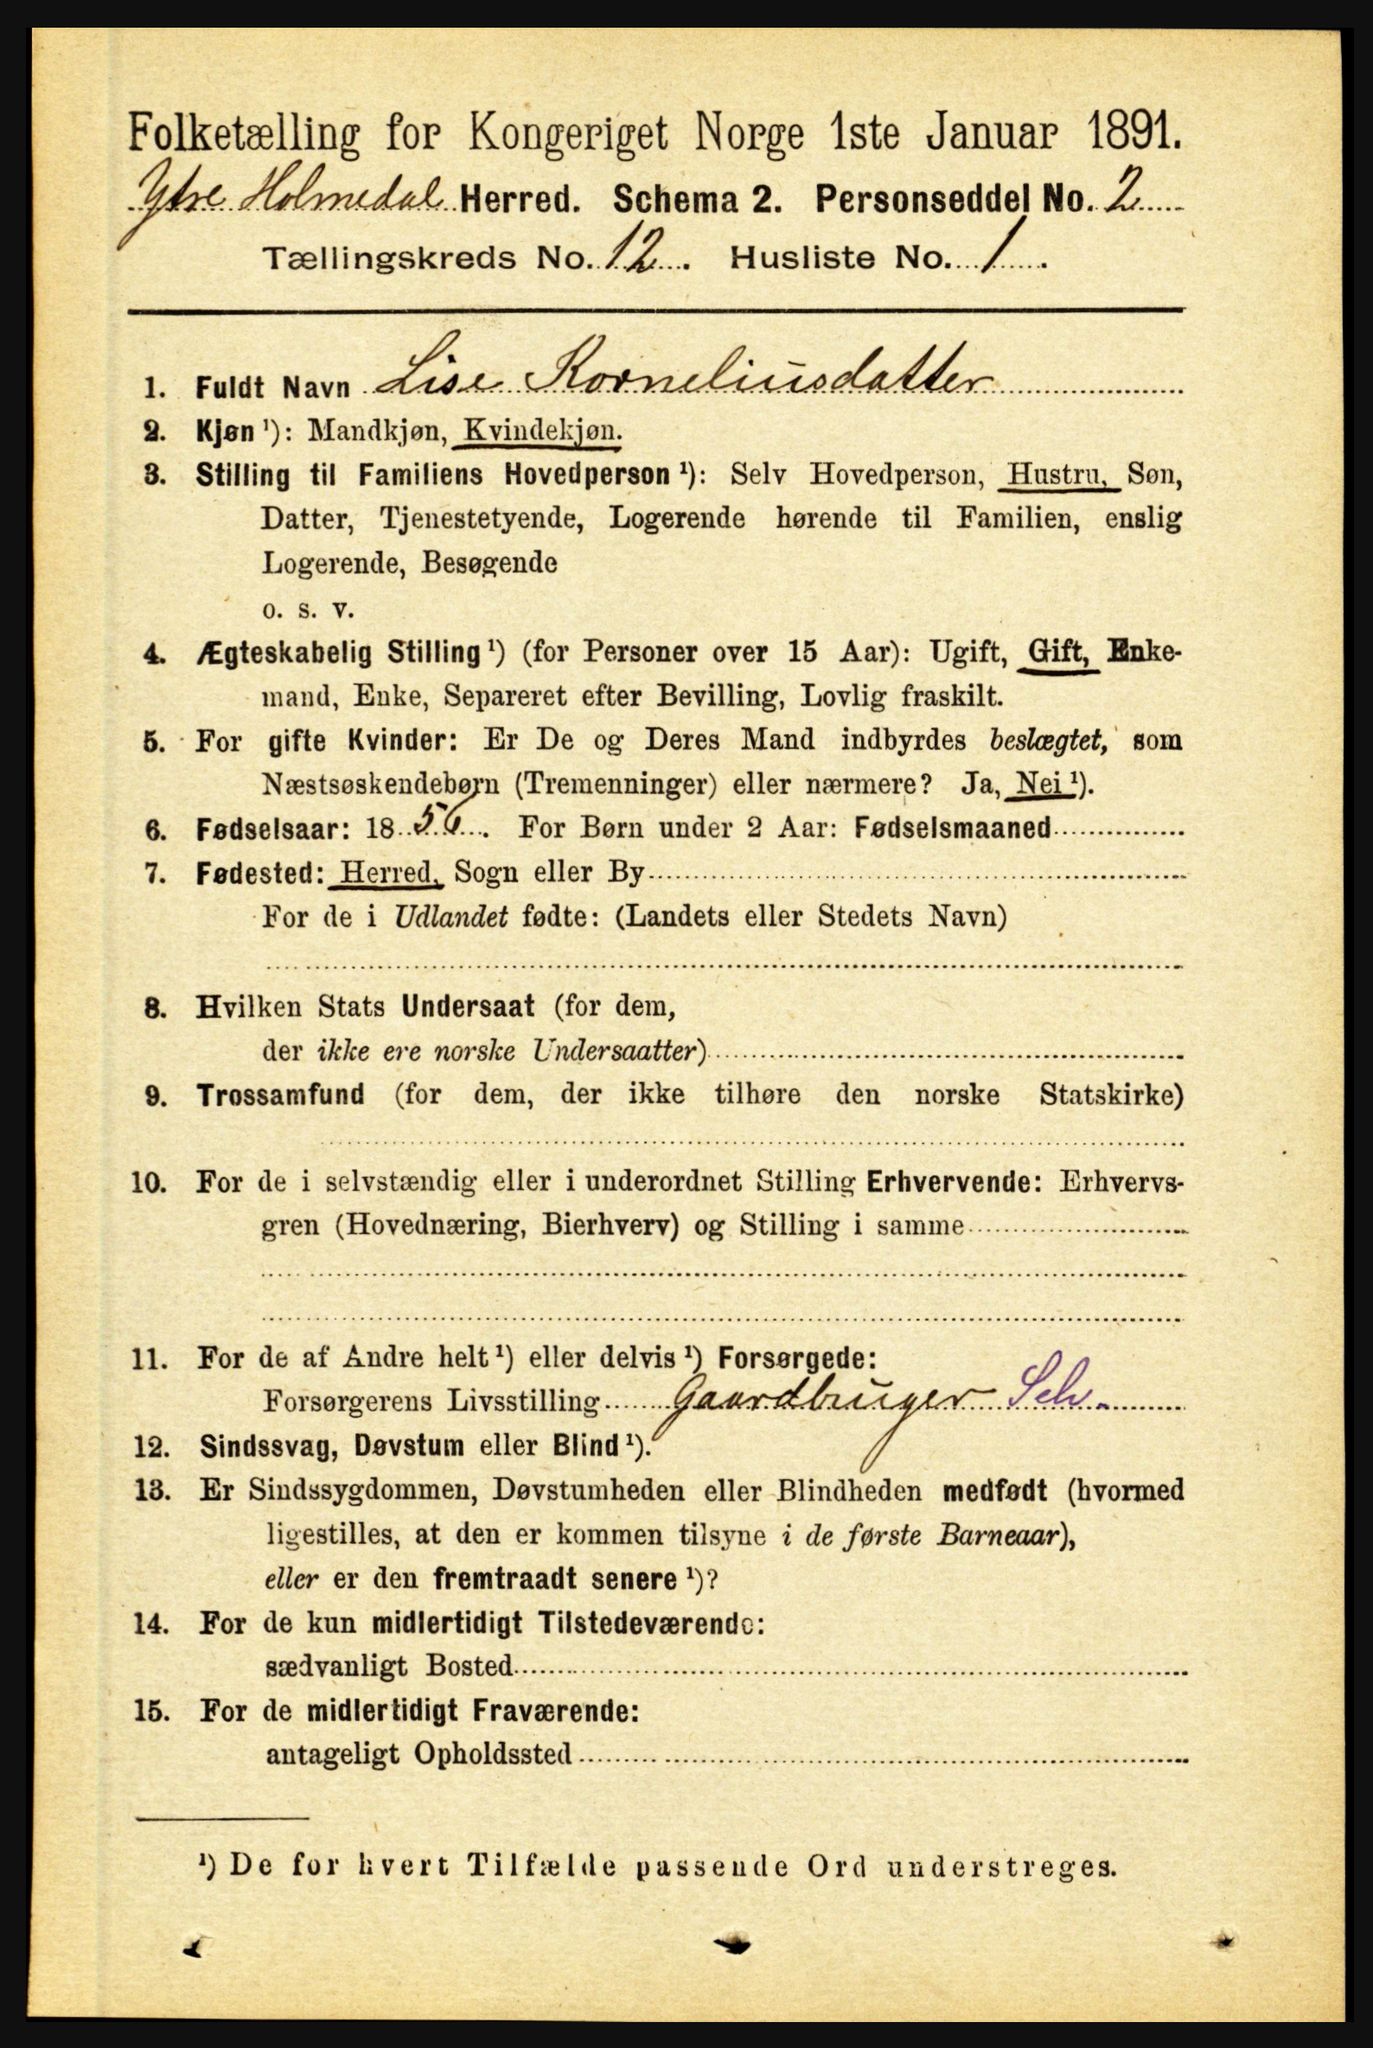 Folketælling for Kongeriget Norge 1ste Januar 1891.
Ytre Holmedal Herred. Schema 2. Personseddel No. 2
Tællingskreds No. 12. Husliste No. 1.
1. Fuldt Navn Lise Korneliusdatter
2. Kjøn ¹): Mandkjøn, Kvindekjøn.
3. Stilling til Familiens Hovedperson ¹): Selv Hovedperson, Hustru, Søn,
Datter, Tjenestetyende, Logerende hørende til Familien, enslig
Logerende, Besøgende
o. s. v.
4. Ægteskabelig Stilling ¹) (for Personer over 15 Aar): Ugift, Gift, Enke-
mand, Enke, Separeret efter Bevilling, Lovlig fraskilt.
5. For gifte Kvinder: Er De og Deres Mand indbyrdes beslægtet, som
Næstsøskendebørn (Tremenninger) eller nærmere? Ja, Nei ¹).
6. Fødselsaar: 1856. For Børn under 2 Aar: Fødselsmaaned
7. Fødested: Herred, Sogn eller By
For de i Udlandet fødte: (Landets eller Stedets Navn)
8. Hvilken Stats Undersaat (for dem,
der ikke ere norske Undersaatter)
9. Trossamfund (for dem, der ikke tilhøre den norske Statskirke)
10. For de i selvstændig eller i underordnet Stilling Erhvervende: Erhvervs-
gren (Hovednæring, Bierhverv) og Stilling i samme
11. For de af Andre helt ¹) eller delvis ¹) Forsørgede:
Forsørgerens Livsstilling Gaardbruger Selv.
12. Sindssvag, Døvstum eller Blind ¹).
13. Er Sindssygdommen, Døvstumheden eller Blindheden medfødt (hvormed
ligestilles, at den er kommen tilsyne i de første Barneaar),
eller er den fremtraadt senere ¹)?
14. For de kun midlertidigt Tilstedeværende:
sædvanligt Bosted
15. For de midlertidigt Fraværende:
antageligt Opholdssted
¹) De for hvert Tilfælde passende Ord understreges.